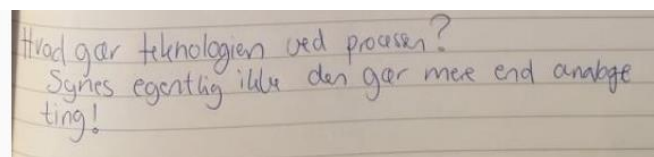 Hvad gør teknologien ved processen?
Synes egentlig ikke den gør mere end analoge
ting!